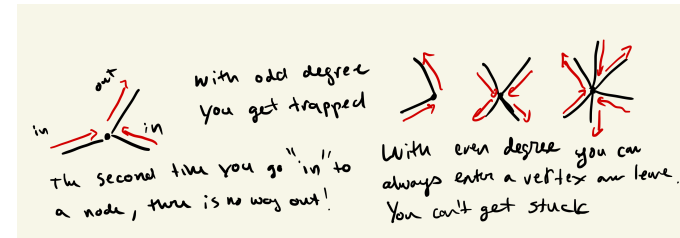 out
in
in
with odd degree
you get trapped
The second time you go "in" to
a node, there is no way out!
With even degree you can
always enter a vertex and leave.
You can't get stuck